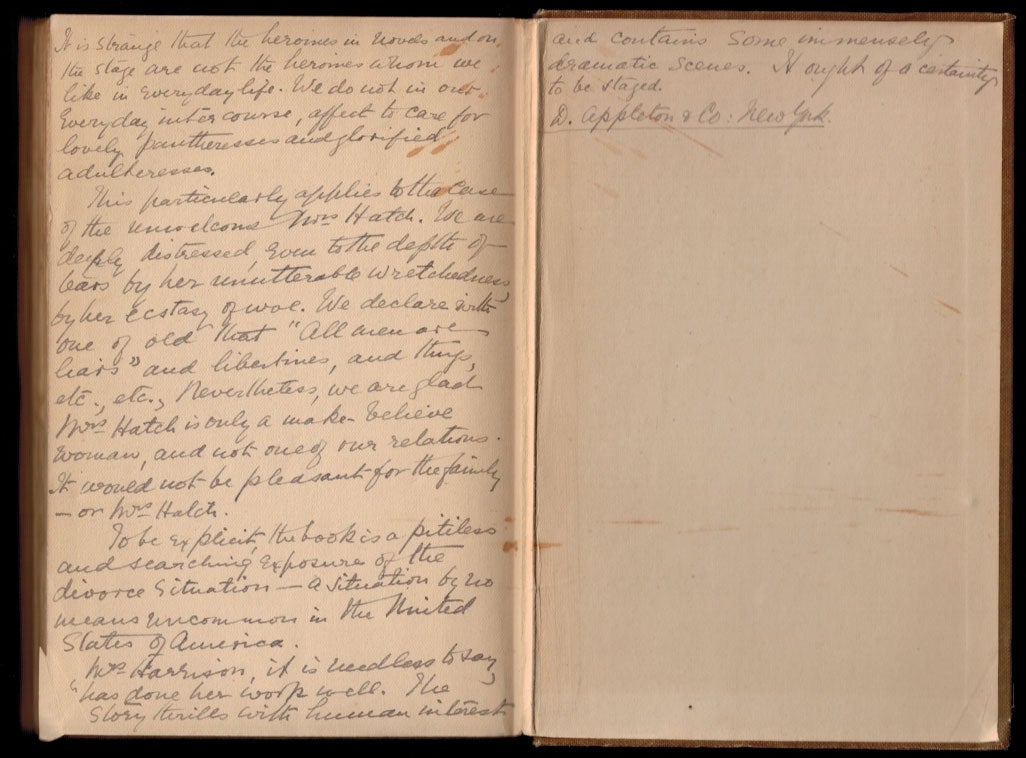 It is strange that the heroines in novels and on
the stage are not the heroines whom we
like in everyday life. We do not in our
everyday intercourse, affect to care for
lovely pantheresses and glorified
adulteresses.
This particularly applies to the case
of the unwelcome Mrs Hatch. We are
deeply distressed, even to the depth of
tears by her unutterable wretchedness,
by her ecstasy of woe. We declare with
one of old that "All men are
liars" and libertines, and things,
etc., etc., Nevertheless, we are glad
Mrs Hatch is only a make-believe
woman, and not one of our relations.
It would not be pleasant for the family
— or Mrs Hatch.
To be explicit, the book is a pitiless
and searching exposure of the
divorce situation — a situation by no
means uncommon in the United
States of America.
Mrs Harrison, it is needless to say,
has done her work well. The
story thrills with human interest
and contains some immensely
dramatic scenes. It ought of a certainty
to be staged.
D. Appleton & Co: New York.